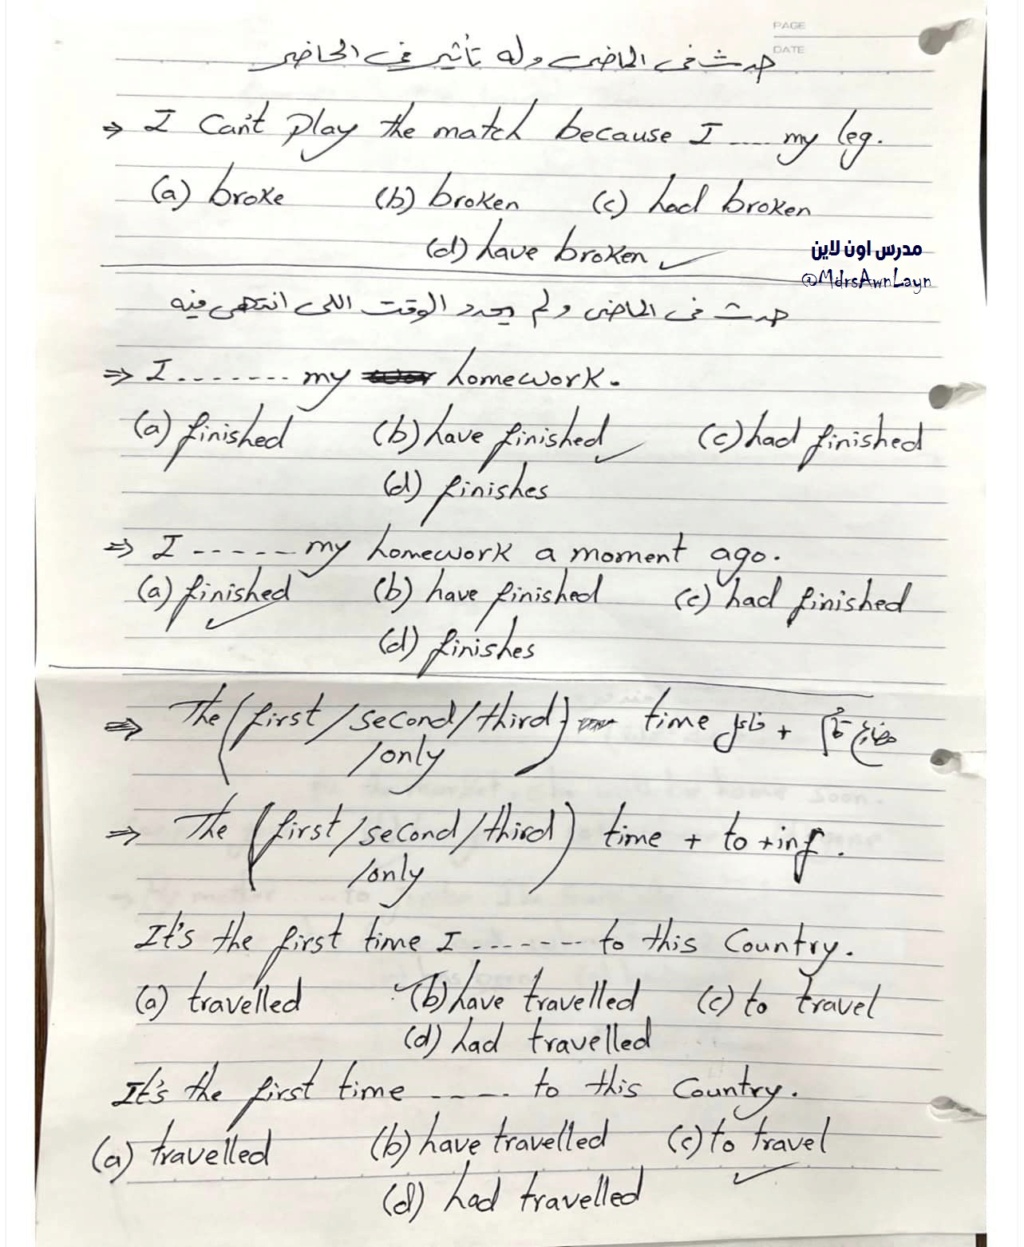 PAGE
DATE
حدث فى الماضى وله تأثير فى الحاضر
⇒ I Can't play the match because I ..... my leg.
(a) broke (b) broken (c) had broken
(d) have broken ✓
مدرس اون لاين
@MdrsAwnLayn
حدث فى الماضى ولم يحدد الوقت اللى انتهى فيه
⇒ I ........ my homework.
(a) finished (b) have finished ✓ (c) had finished
(d) finishes
⇒ I ------ my homework a moment ago.
(a) finished ✓ (b) have finished (c) had finished
(d) finishes
⇒ The (first / second / third) time فاعل + مضارع تام
/only
⇒ The (first / second / third) time + to + inf.
/only
It's the first time I ------- to this Country.
(a) travelled ✓ (b) have travelled (c) to travel
(d) had travelled
It's the first time ----- to this Country.
(a) travelled (b) have travelled (c) to travel ✓
(d) had travelled